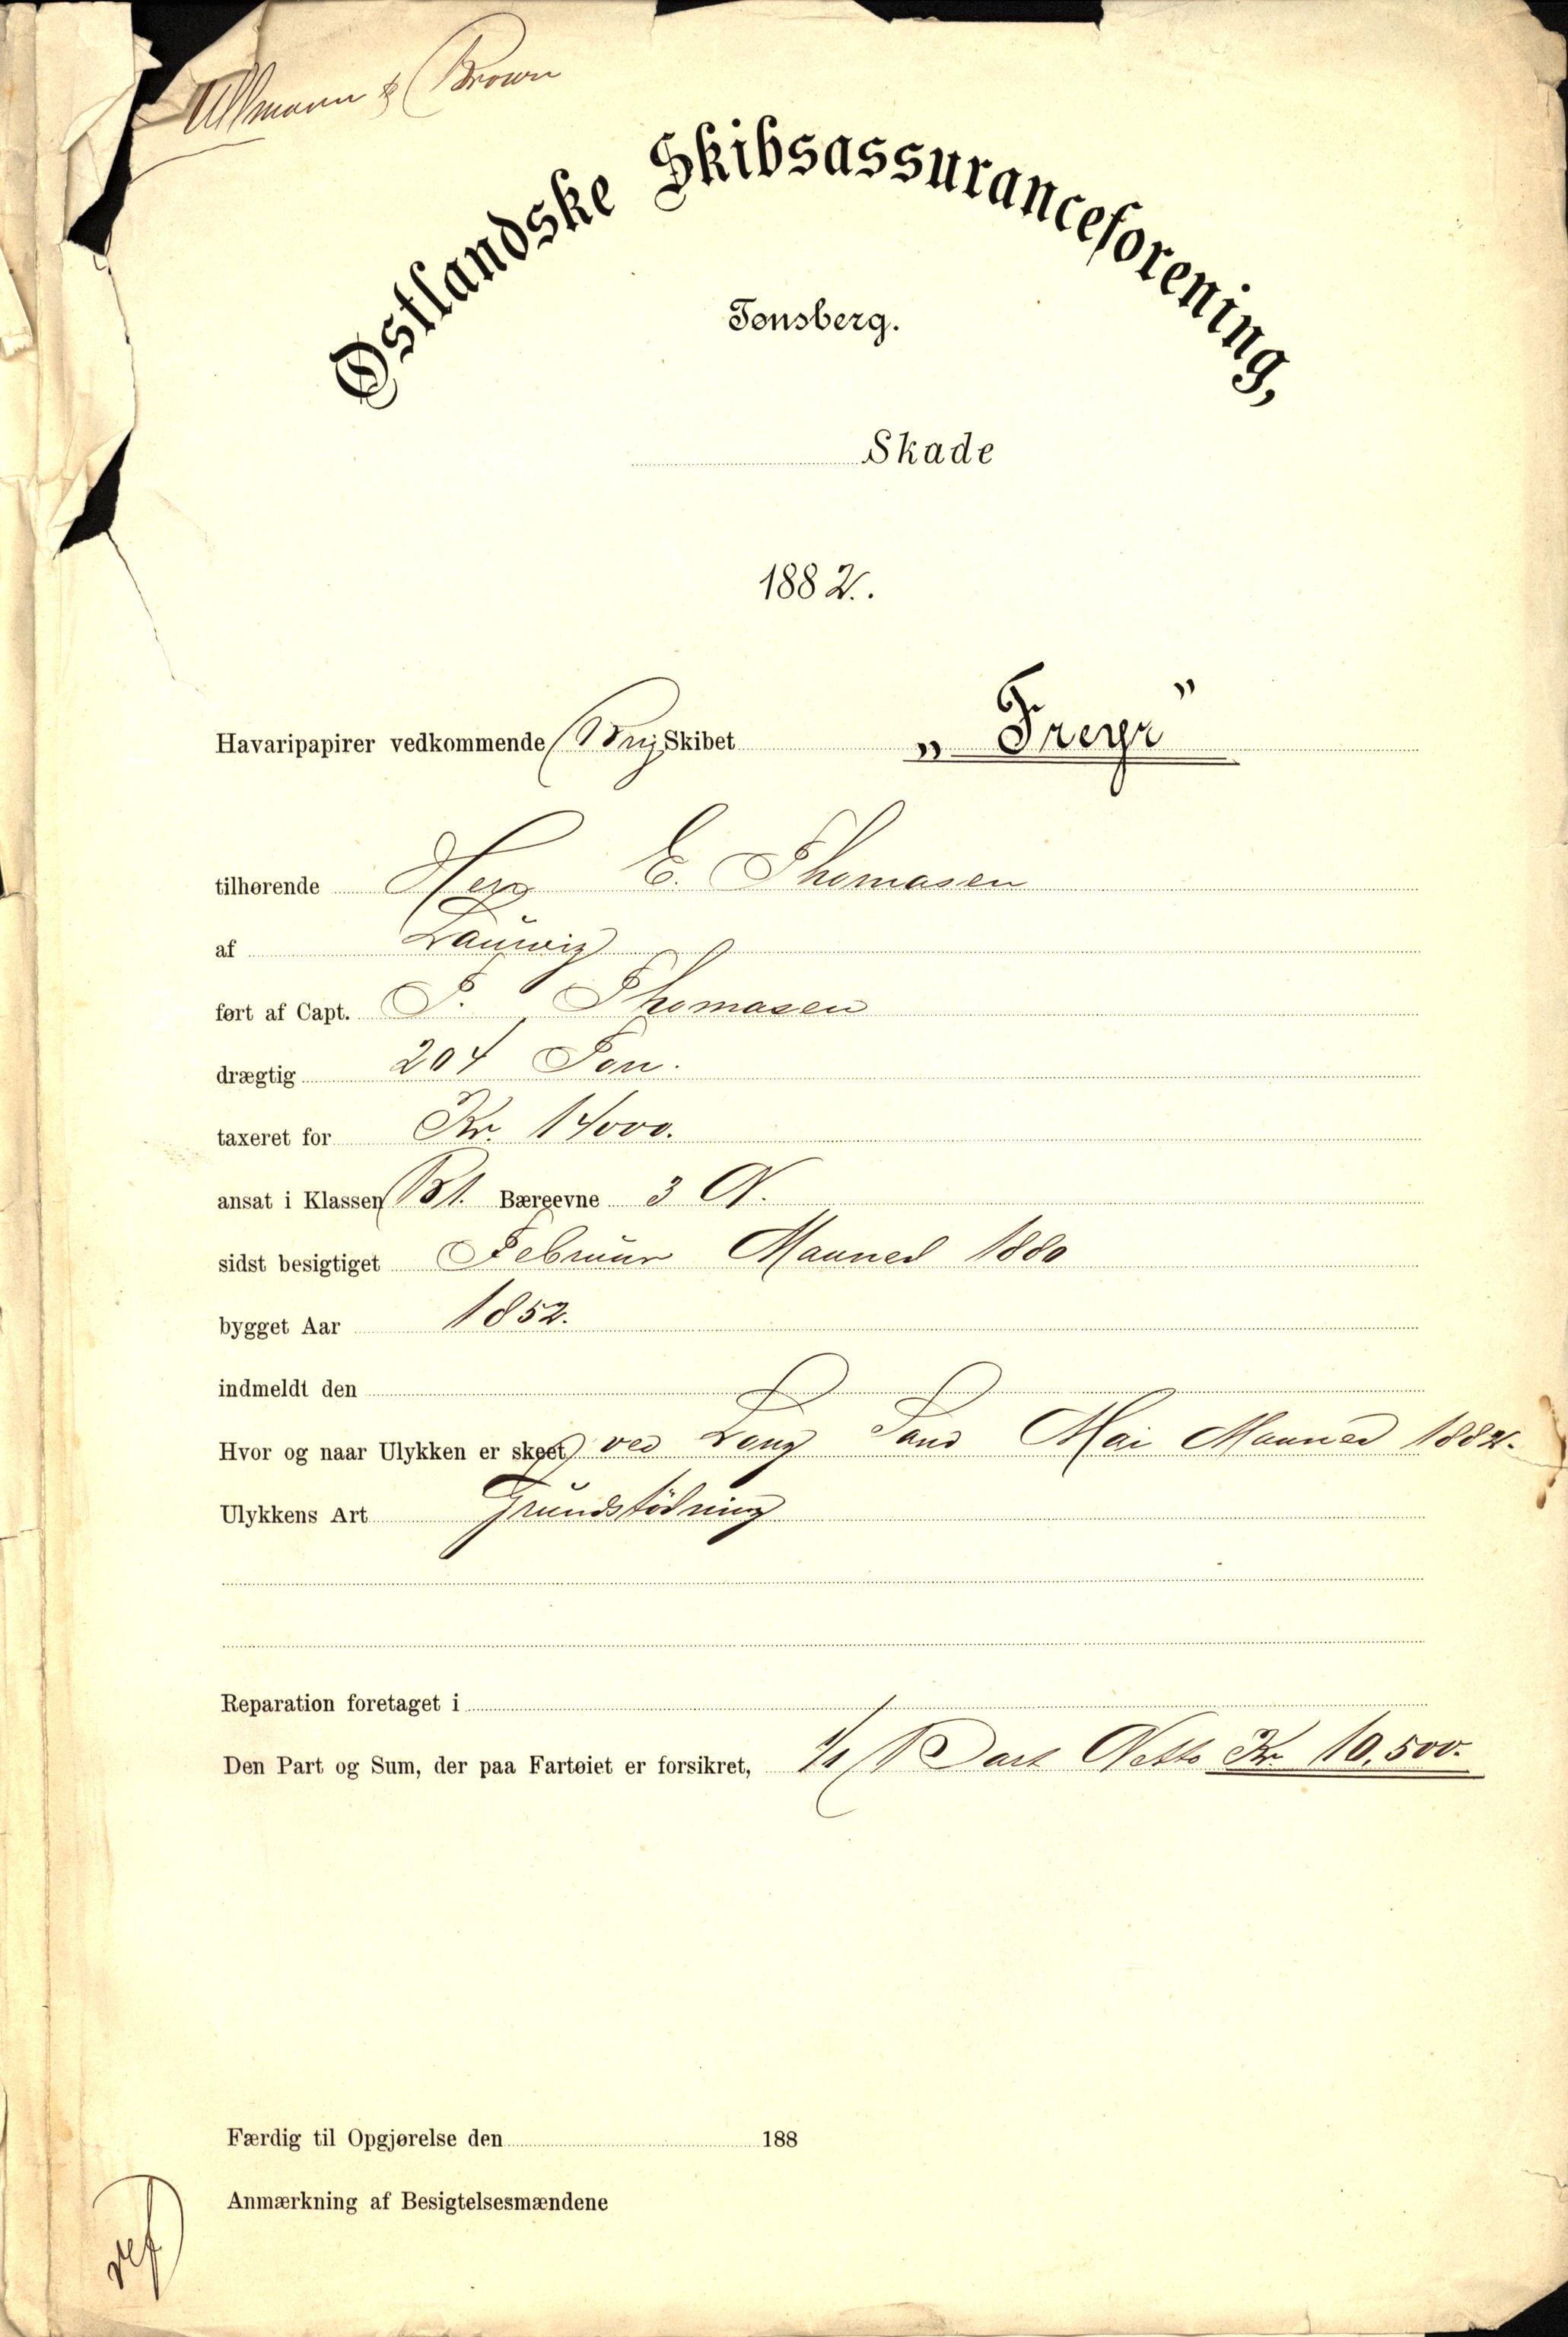 Ullmann & Brown
Østlandske Skibsassuranceforening,
Tønsberg.
Skade
1882.
Havaripapirer vedkommende Brig Skibet „Freyr”
tilhørende Herr E. Thomasen
af Laurvig
ført af Capt. T. Thomasen
drægtig 204 Ton.
taxeret for Kr. 14000.
ansat i Klassen B1. Bæreevne 3 N.
sidst besigtiget Februar Maaned 1880
bygget Aar 1852.
indmeldt den
Hvor og naar Ulykken er skeet, ved Long Sand Mai Maaned 1882.
Ulykkens Art Grundstödning
Reparation foretaget i
Den Part og Sum, der paa Fartøiet er forsikret, 1/1 Part Netto Kr. 10,500.
Færdig til Opgjørelse den 188
Anmærkning af Besigtelsesmændene
ref